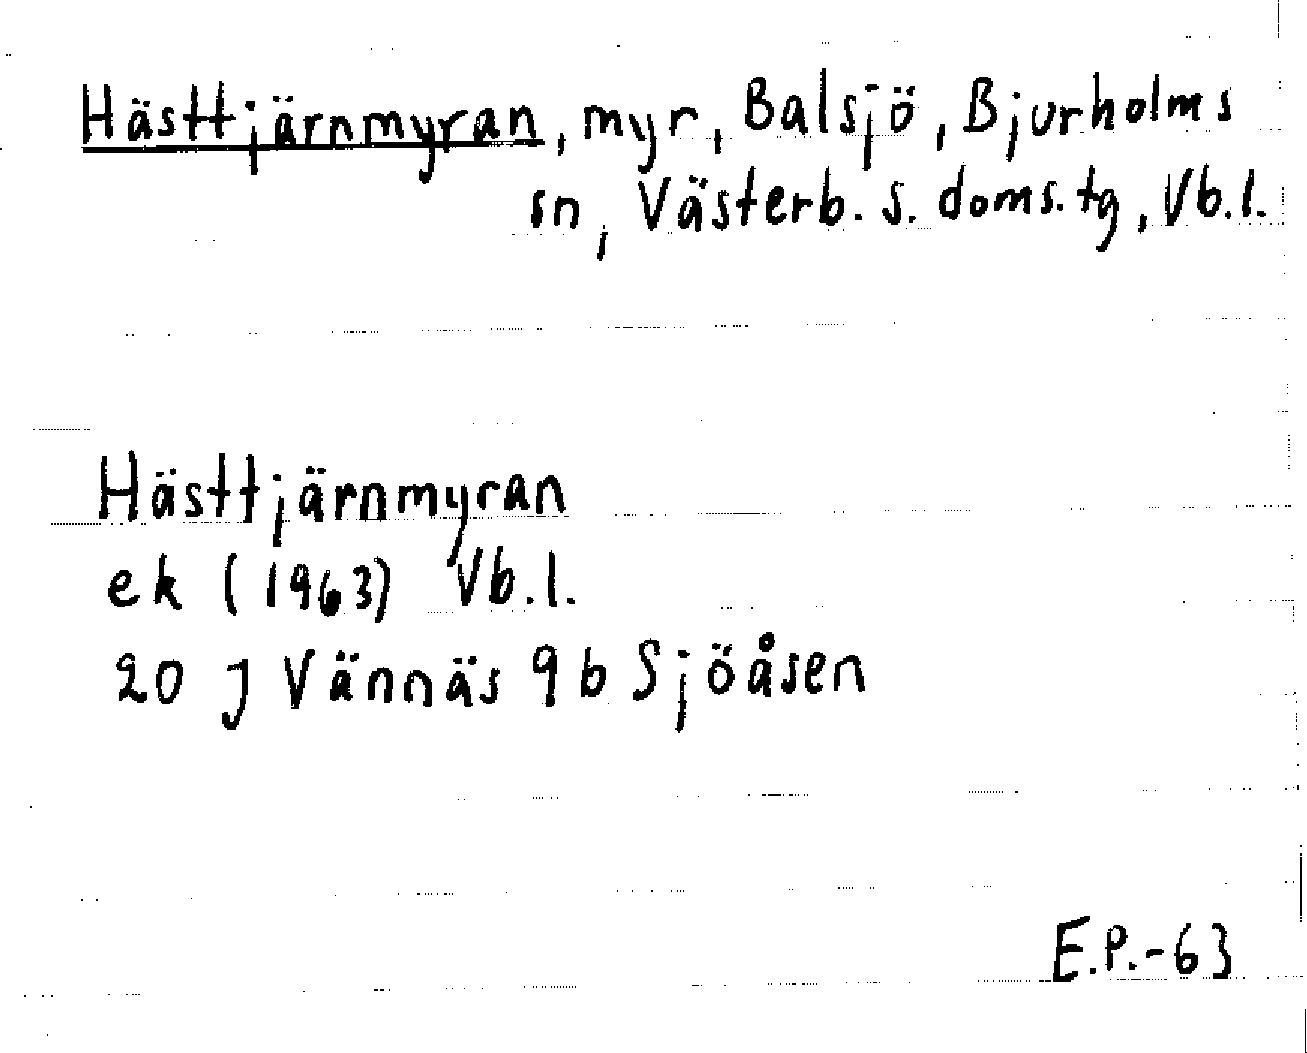 Hästtjärnmyran, myr, Balsjö, Bjurholms
sn, Västerb. s. doms. tg, Vb.l.
Hästtjärnmyran
ek (1963) Vb.l.
20 J Vännäs 9b Sjöåsen
E.P.-63